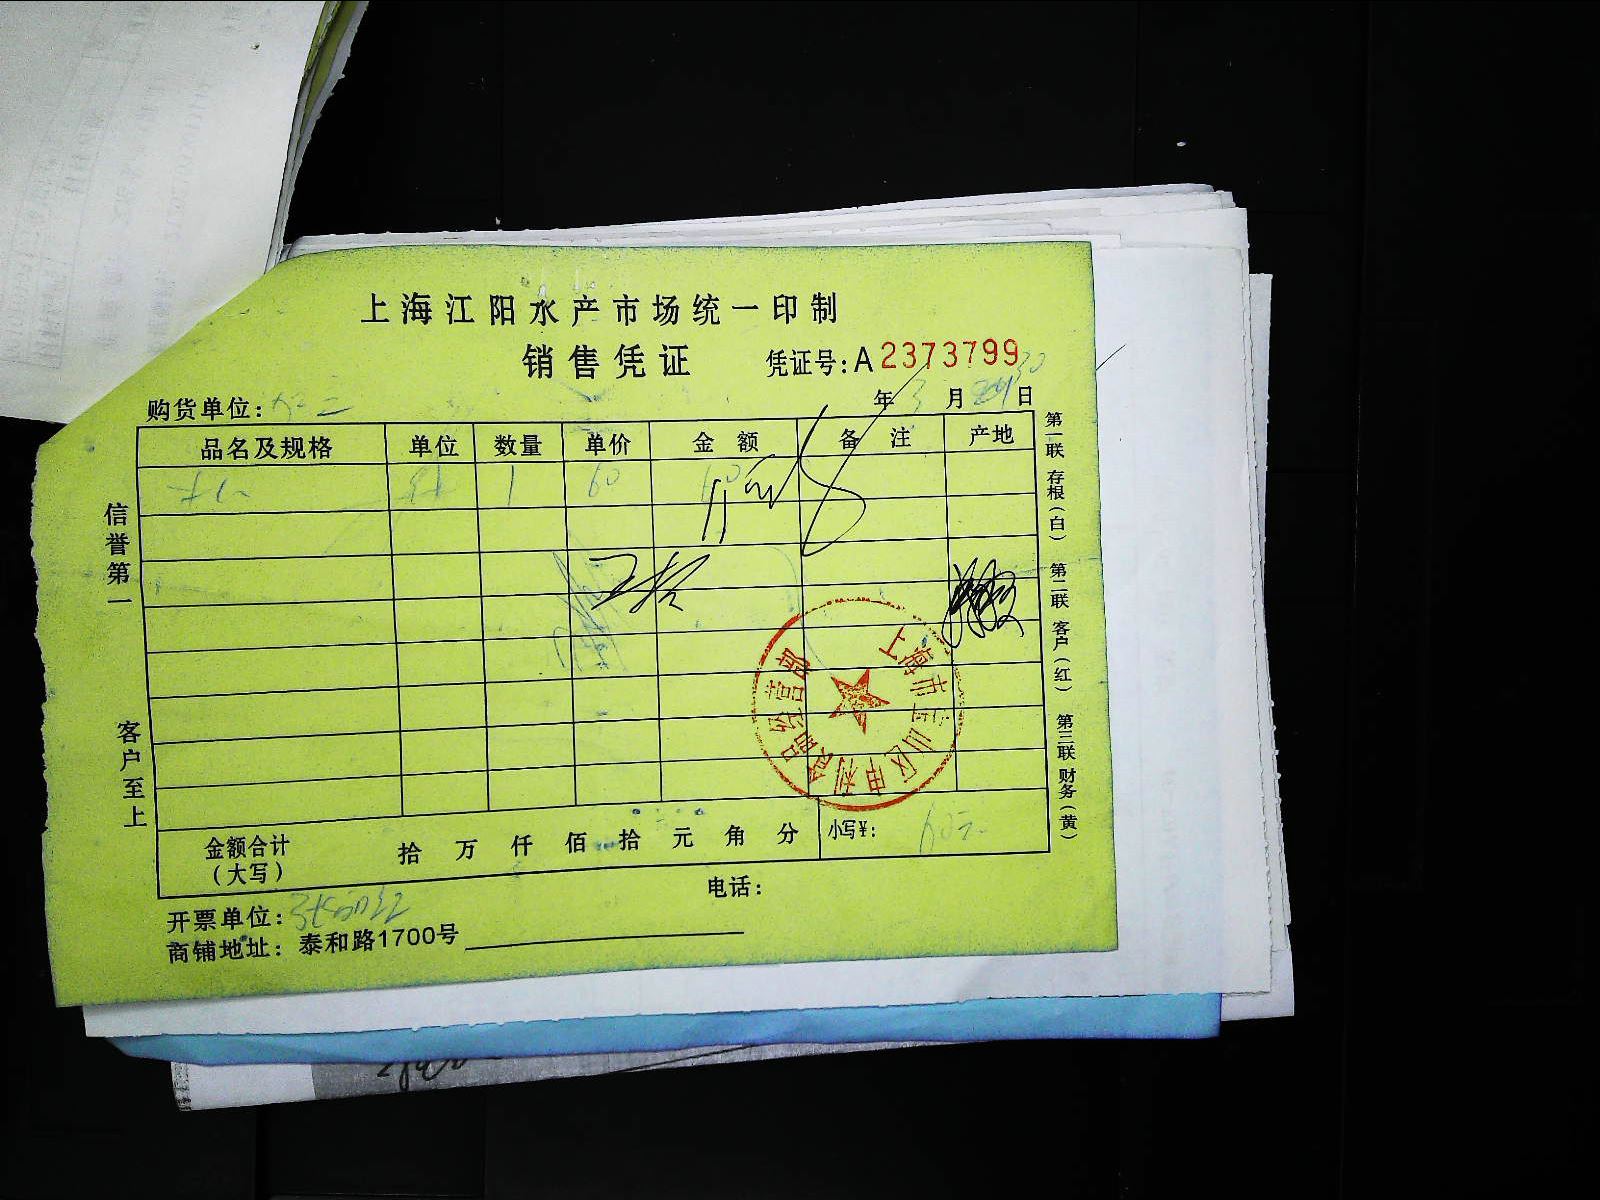 上海江阳水产市场统一印制
销售凭证 凭证号:A2373799
购货单位: 年 3 月 30 日
品名及规格 单位 数量 单价 金额 备注 产地
1 60 60
金额合计(大写) 拾 万 仟 佰 拾 元 角 分 小写¥: 60元
电话:
开票单位:
商铺地址: 泰和路1700号
信誉第一
客户至上
第一联 存根(白) 第二联 客户(红) 第三联 财务(黄)